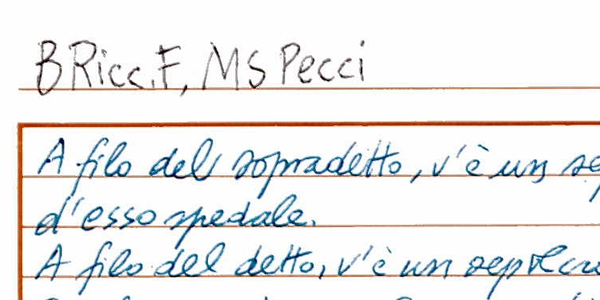 B Ricc. F, MS Pecci
A filo del sopradetto, v'è un
d'esso spedale.
A filo del detto, v'è un